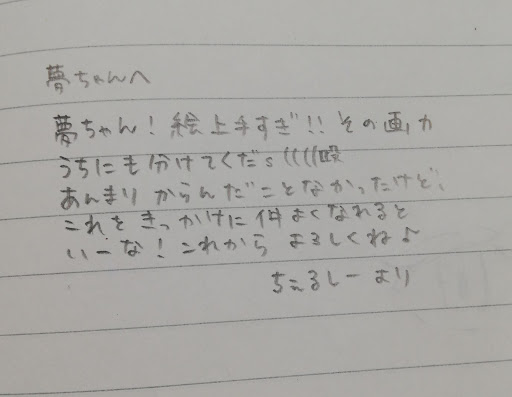 夢ちゃんへ
夢ちゃん！絵上手すぎ!! その画力
うちにも分けてくだs((((殴
あんまりからんだことなかったけど、
これをきっかけに仲よくなれると
いーな！これからよろしくね♪
ちころしーより